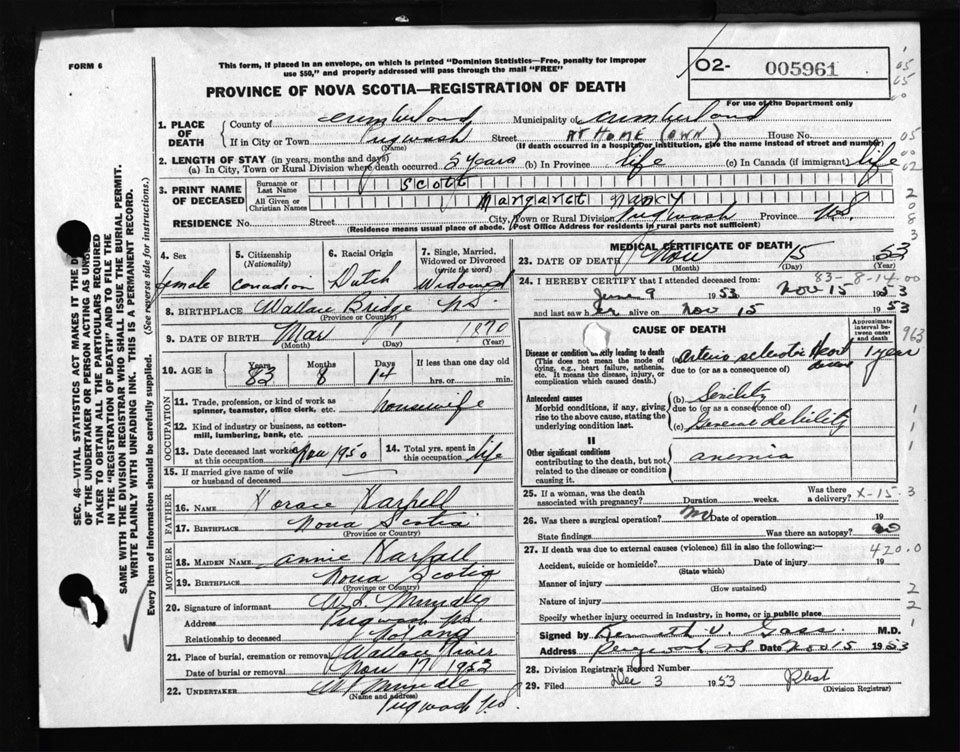 FORM 6
This form, if placed in an envelope, on which is printed "Dominion Statistics—Free, penalty for improper
use $50," and properly addressed will pass through the mail "FREE"
02- 005961
PROVINCE OF NOVA SCOTIA—REGISTRATION OF DEATH
For use of the Department only
1. PLACE OF DEATH
County of Cumberland Municipality of Cumberland
If in City or Town Pugwash Street AT HOME (OWN) House No.
(Name) (If death occurred in a hospital or institution, give the name instead of street and number)
2. LENGTH OF STAY (in years, months and days)
(a) In City, Town or Rural Division where death occurred 5 years (b) In Province life (c) In Canada (if immigrant) life
3. PRINT NAME OF DECEASED
Surname or Last Name Scott
All Given or Christian Names Margaret Nancy
RESIDENCE No. Street City, Town or Rural Division Pugwash Province N.S.
(Residence means usual place of abode. (Post Office Address for residents in rural parts not sufficient)
4. Sex female
5. Citizenship (Nationality) Canadian
6. Racial Origin Dutch
7. Single, Married, Widowed or Divorced (write the word) Widowed
8. BIRTHPLACE Wallace Bridge N.S.
(Province or Country)
9. DATE OF BIRTH Mar 1 1870
(Month) (Day) (Year)
10. AGE in Years 83 Months 8 Days 14 If less than one day
hrs. or min.
OCCUPATION
11. Trade, profession, or kind of work as spinner, teamster, office clerk, etc. housewife
12. Kind of industry or business, as cotton-mill, lumbering, bank, etc.
13. Date deceased last worked at this occupation Nov 1950
14. Total yrs. spent in this occupation life
15. If married give name of wife or husband of deceased
FATHER
16. NAME Horace Harpell
17. BIRTHPLACE Nova Scotia
(Province or Country)
MOTHER
18. MAIDEN NAME Annie
19. BIRTHPLACE Nova Scotia
(Province or Country)
20. Signature of informant
Address Pugwash N.S.
Relationship to deceased
21. Place of burial, cremation or removal Wallace River
Date of burial or removal Nov 17 1953
22. UNDERTAKER
(Name and address)
Pugwash N.S.
MEDICAL CERTIFICATE OF DEATH
23. DATE OF DEATH Nov 15 1953
(Month) (Day) (Year)
83-8-14-00
24. I HEREBY CERTIFY that I attended deceased from:
June 9 1953 Nov 15 1953
and last saw her alive on Nov 15 1953
CAUSE OF DEATH
Approximate interval between onset and death
963
I
Disease or condition directly leading to death
(This does not mean the mode of dying, e.g., heart failure, asthenia, etc. It means the disease, injury, or complication which caused death.)
Arterio sclerotic Heart disease 1 year
due to (or as a consequence of)
Antecedent causes
Morbid conditions, if any, giving rise to the above cause, stating the underlying condition last.
(b) Senility
due to (or as a consequence of)
(c) General debility
II
Other significant conditions
contributing to the death, but not related to the disease or condition causing it.
anemia
25. If a woman, was the death associated with pregnancy? Duration weeks. Was there a delivery? X-15-3
26. Was there a surgical operation? No Date of operation 19
State findings Was there an autopsy? no
27. If death was due to external causes (violence) fill in also the following:— 420.0
Accident, suicide or homicide? Date of injury 19
(State which)
Manner of injury
(How sustained)
Nature of injury
Specify whether injury occurred in industry, in home, or in public place
Signed by Kenneth V. Gass M.D.
Address Pugwash NS Date Nov 15 1953
28. Division Registrar's Record Number
29. Filed Dec 3 1953
(Division Registrar)
SEC. 46—VITAL STATISTICS ACT MAKES IT THE DUTY
OF THE UNDERTAKER OR PERSON ACTING AS UNDER-
TAKER TO OBTAIN ALL THE PARTICULARS REQUIRED
IN THE "REGISTRATION OF DEATH" AND TO FILE THE
SAME WITH THE DIVISION REGISTRAR WHO SHALL ISSUE THE BURIAL PERMIT.
WRITE PLAINLY WITH UNFADING INK. THIS IS A PERMANENT RECORD.
Every item of information should be carefully supplied. (See reverse side for instructions.)